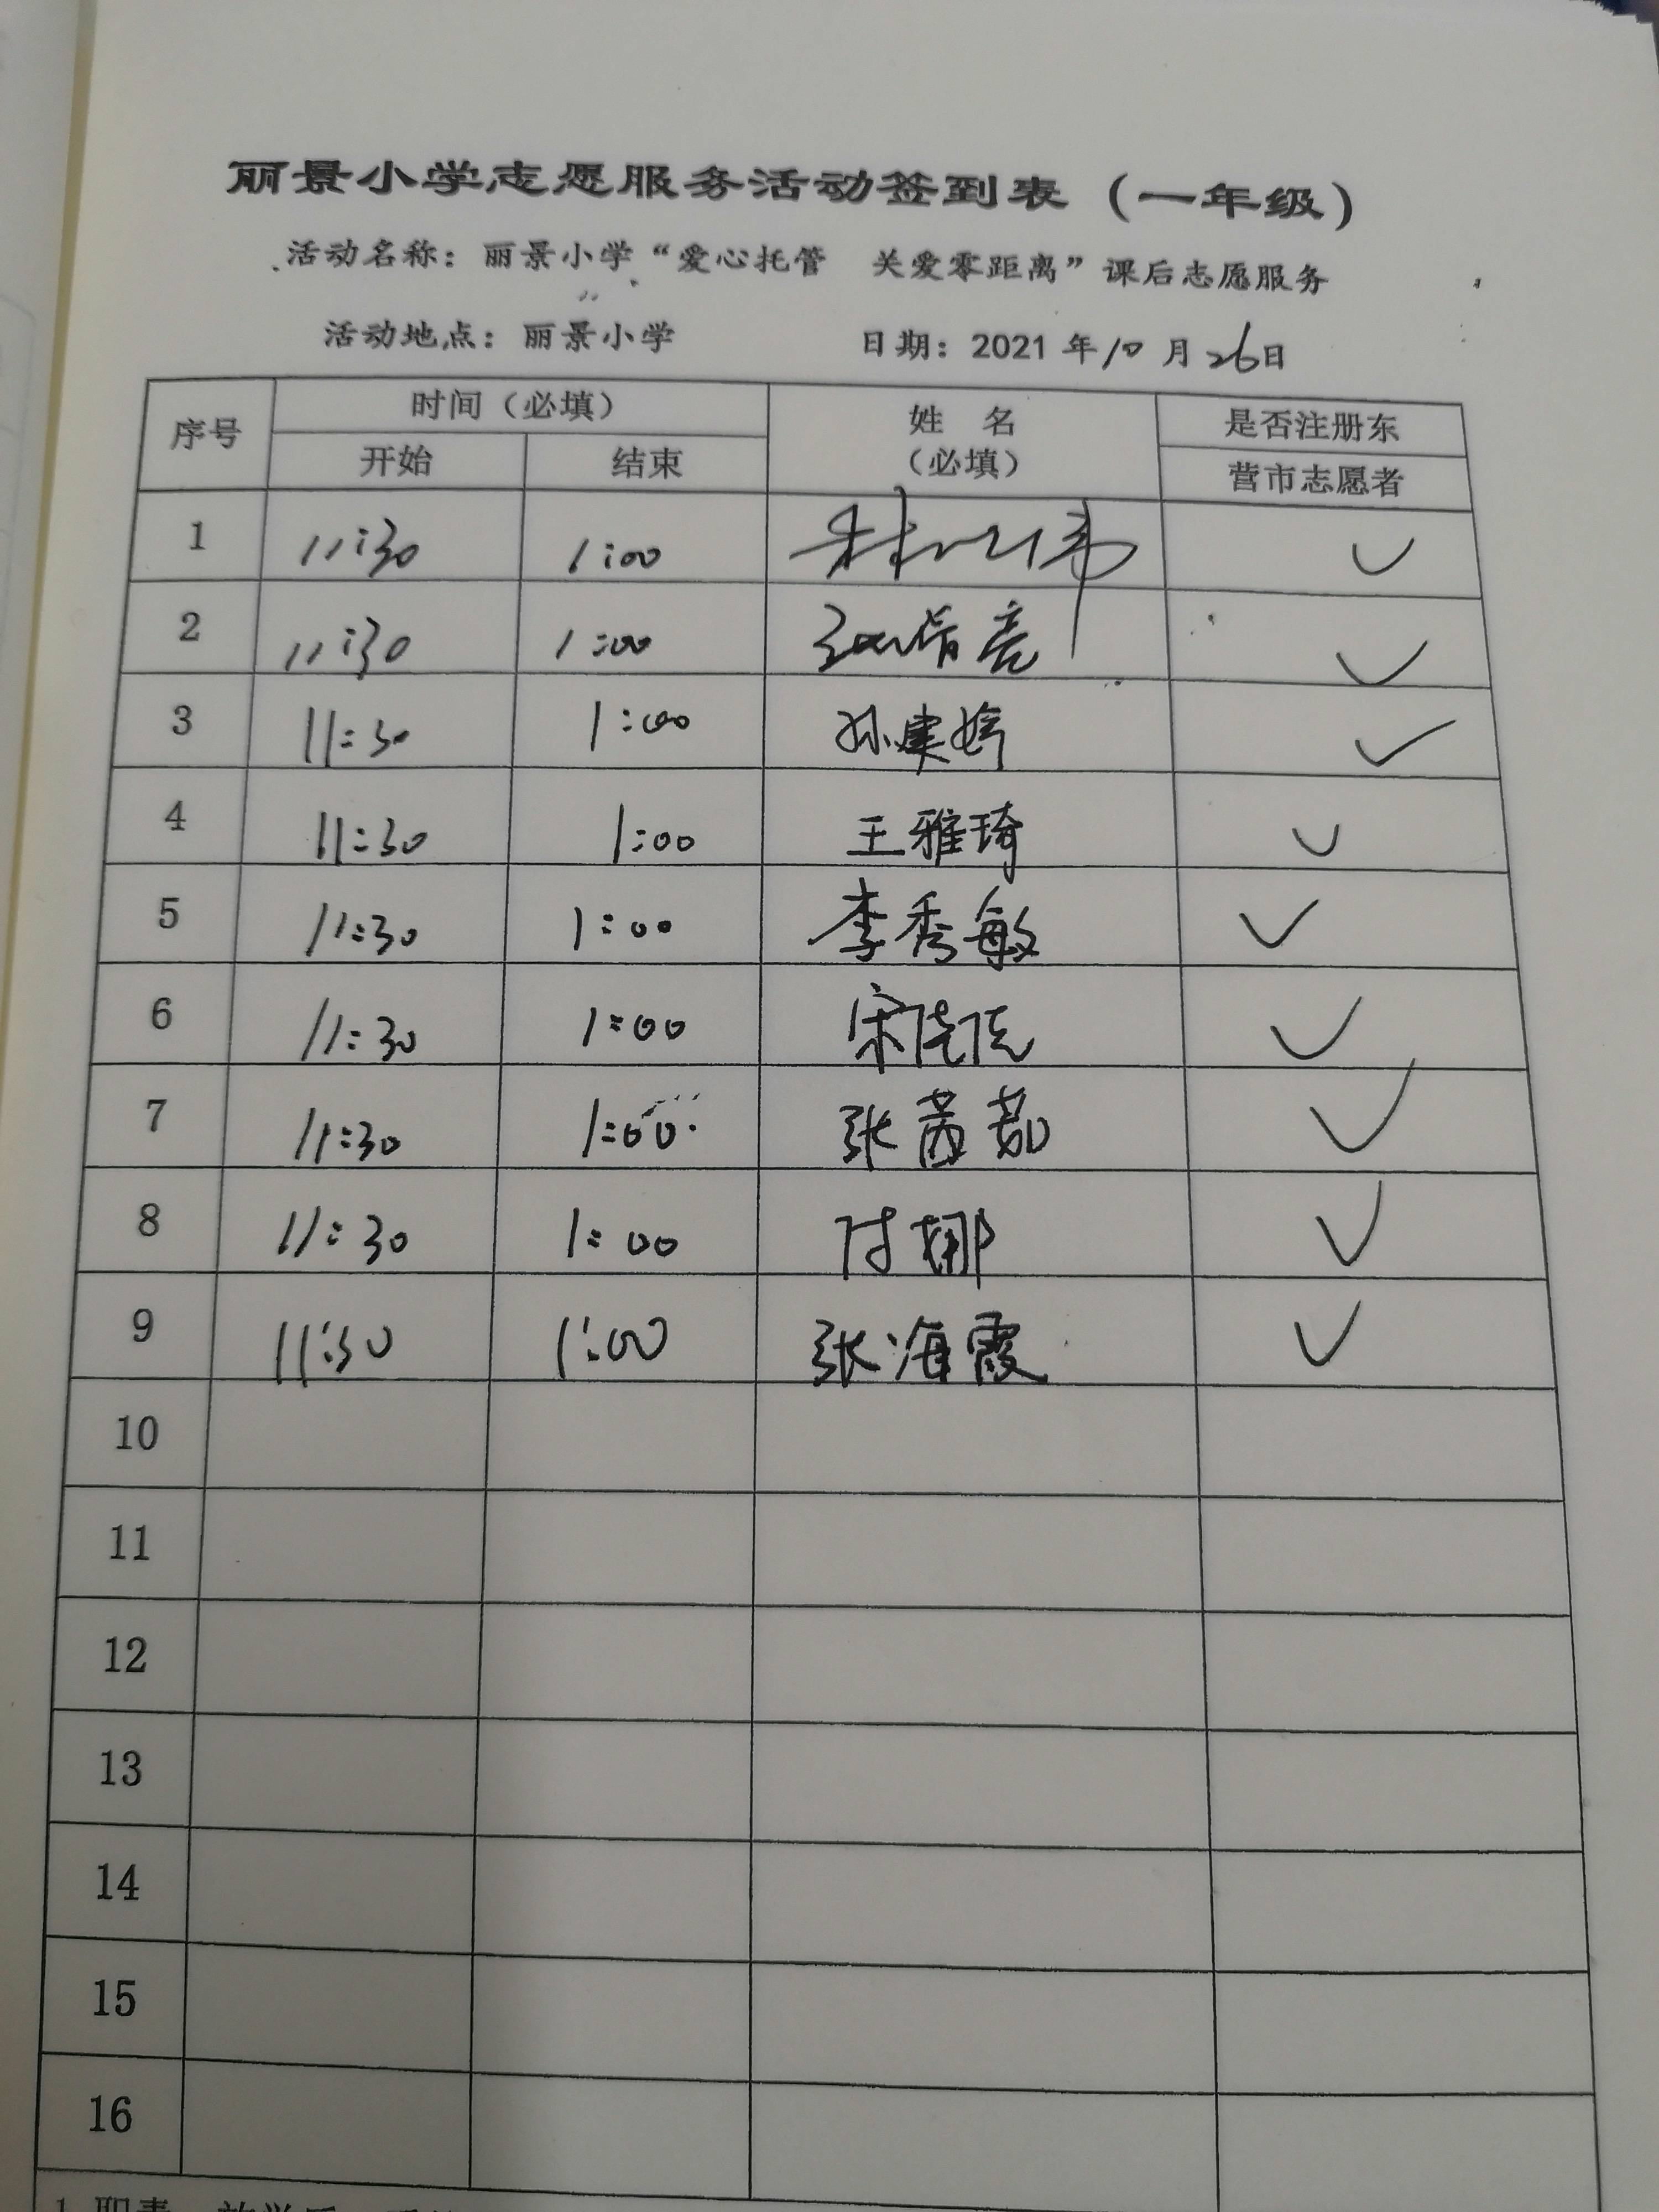 丽景小学志愿服务活动签到表（一年级）
活动名称：丽景小学“爱心托管 关爱零距离”课后志愿服务
活动地点：丽景小学 日期：2021年10月26日
序号 时间（必填） 姓 名 是否注册东
开始 结束 （必填） 营市志愿者
1 11:30 1:00 ✓
2 11:30 1:00 ✓
3 11:30 1:00 孙建婷 ✓
4 11:30 1:00 王雅琦 ✓
5 11:30 1:00 李秀敏 ✓
6 11:30 1:00 宋 ✓
7 11:30 1:00 张茜茹 ✓
8 11:30 1:00 付娜 ✓
9 11:30 1:00 张海霞 ✓
10
11
12
13
14
15
16